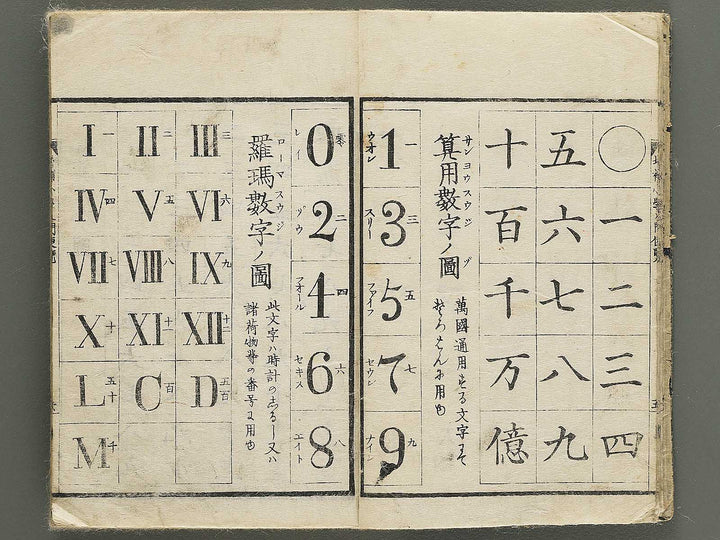 〇
一
二
三
四
五
六
七
八
九
十
百
千
万
億
算用數字ノ圖
サンヨウスウジ ヅ
萬國通用する文字にて
そろばんに用ゆ
1 一 ウオン
3 三 スリー
5 五 ファイフ
7 七 セウン
9 九 ナイン
0 零 レイ
2 二 ヅウ
4 四 フオール
6 六 セキス
8 八 エイト
羅瑪數字ノ圖
ローマスウジ
此文字ハ時計のしるし又ハ
諸荷物等の番号に用ゆ
III 三
II 二
I 一
VI 六
V 五
IV 四
IX 九
VIII 八
VII 七
XII 十二
XI 十一
X 十
D 五百
C 百
L 五十
M 千